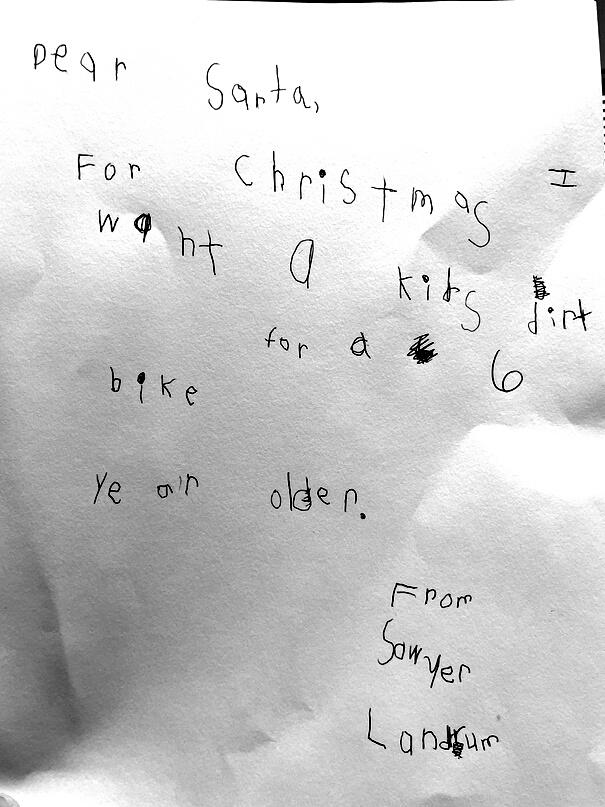 Dear Santa,
For Christmas I
want a kids dirt
bike for a 6
year older.
From
Sawyer
Landrum